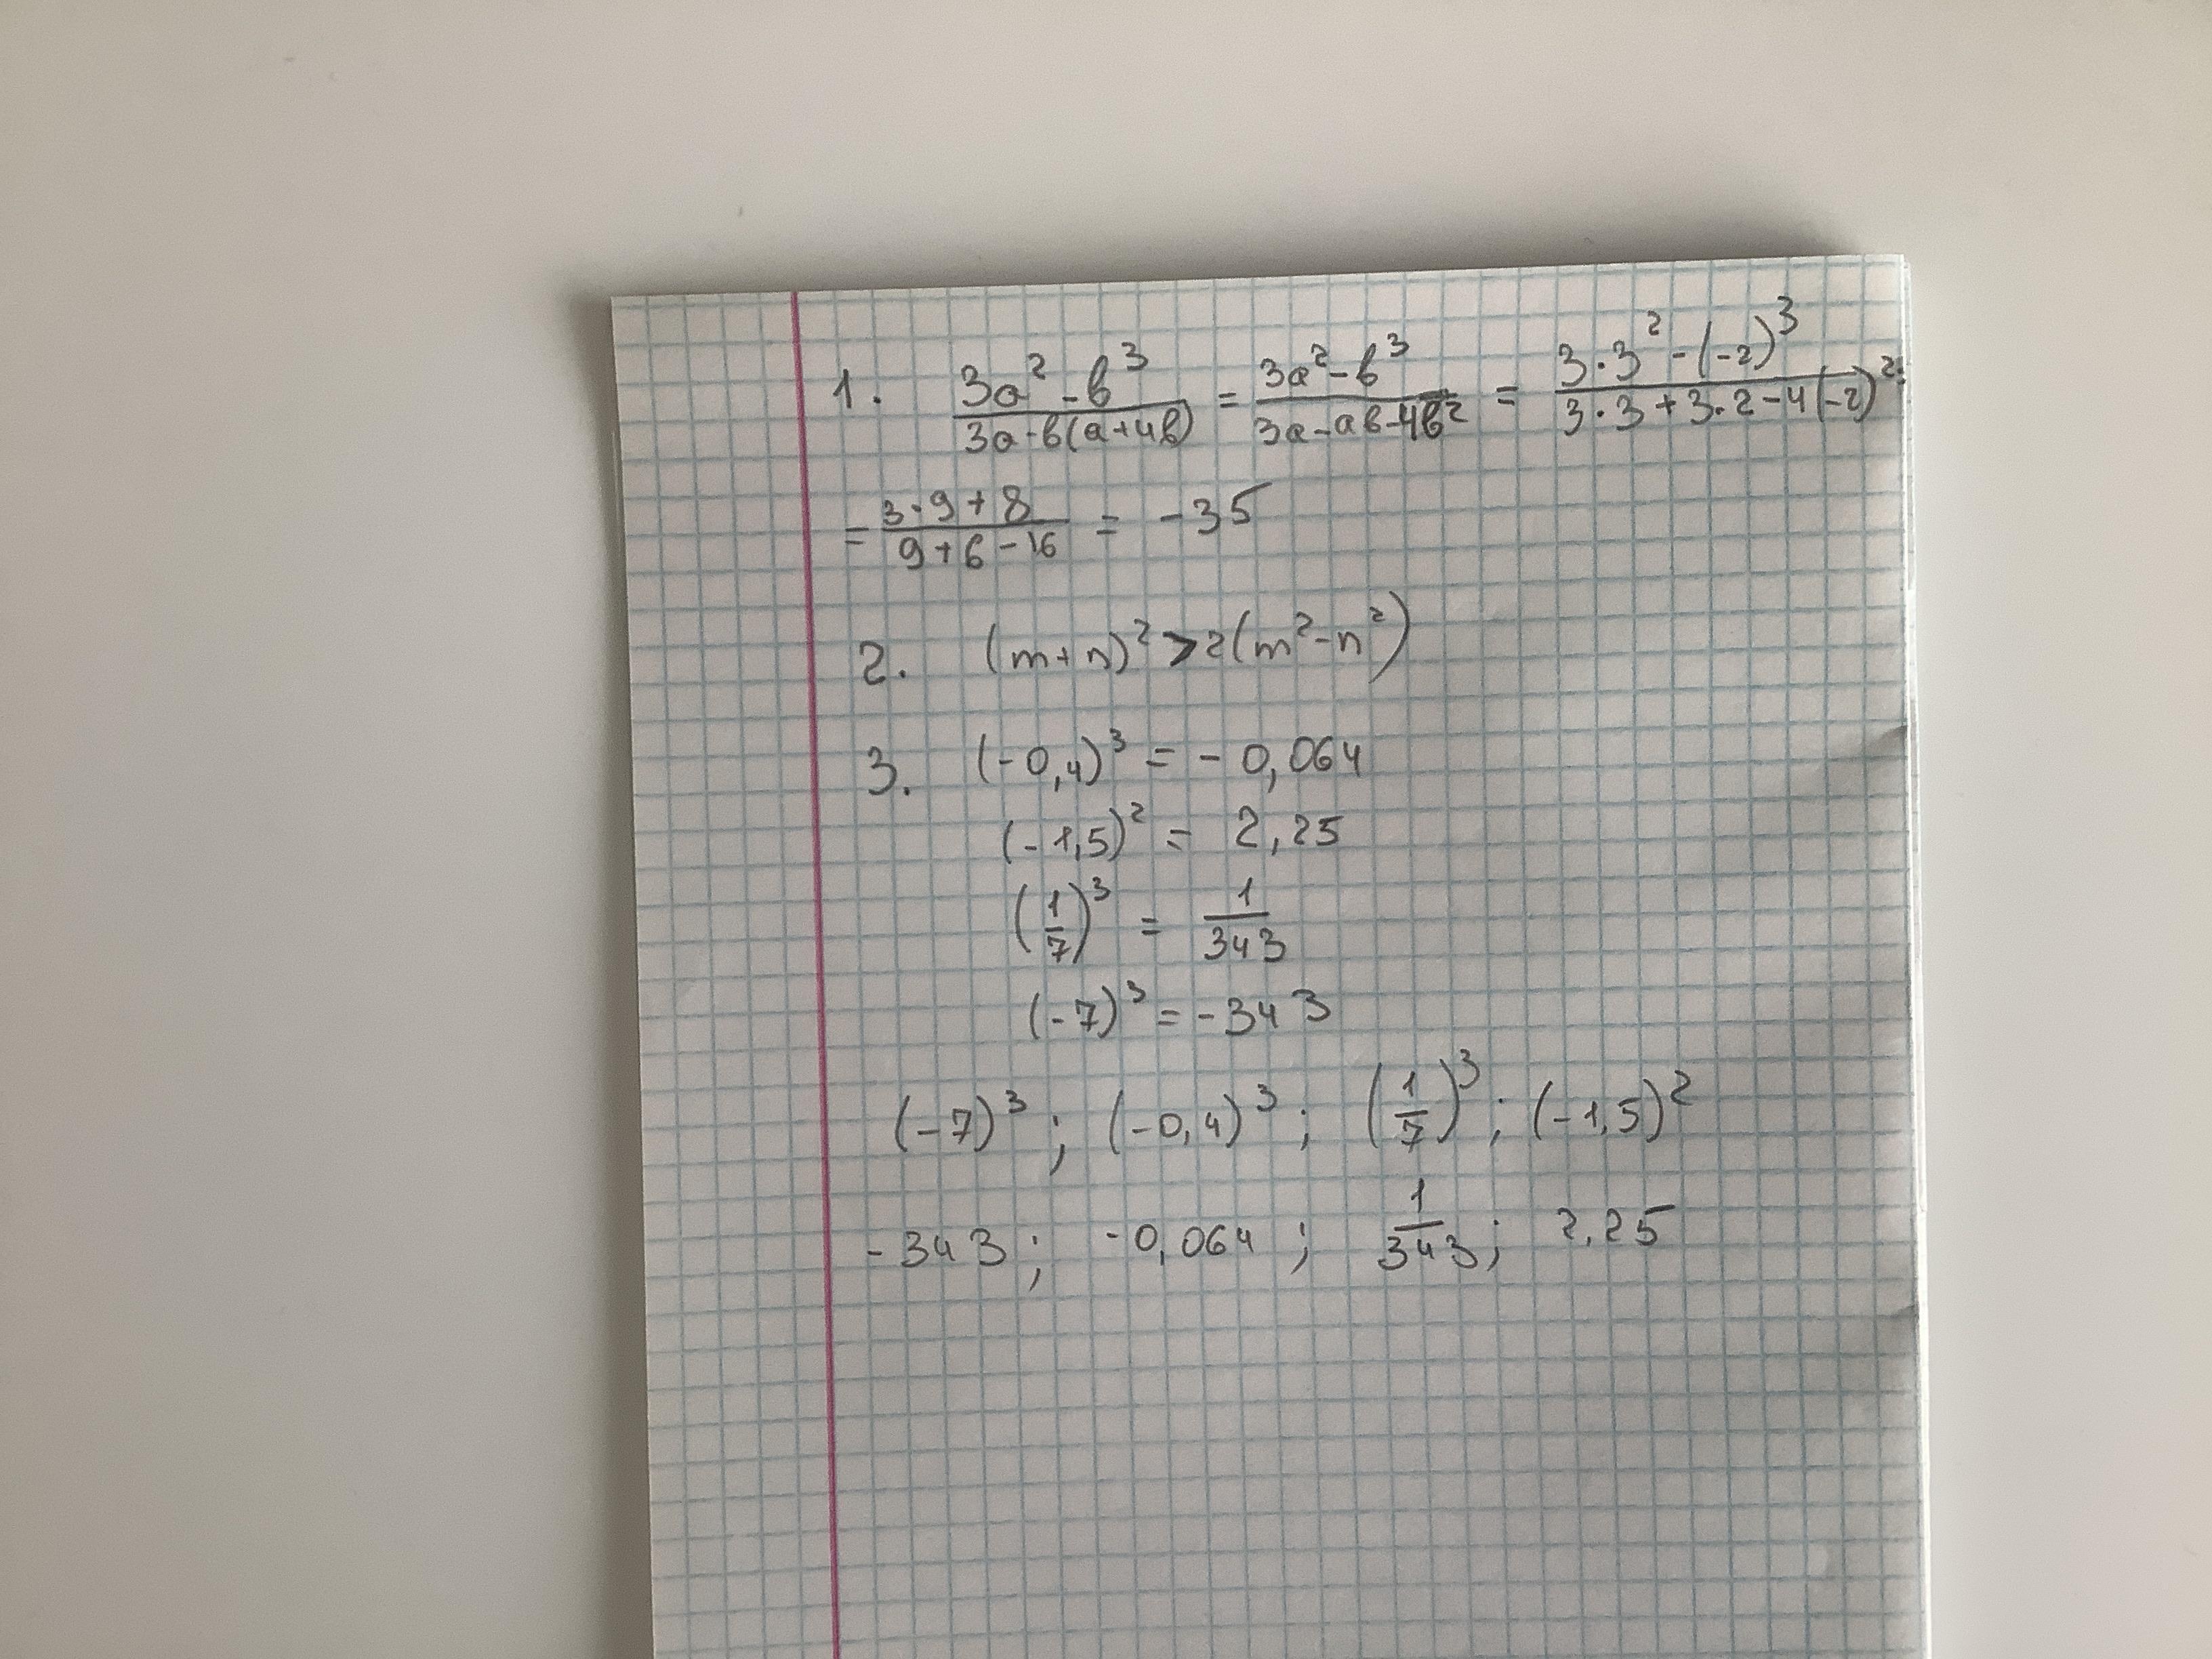 1. (3a² - b³)/(3a - b(a+4b)) = (3a² - b³)/(3a - ab - 4b²) = (3·3² - (-2)³)/(3·3 + 3·2 - 4(-2)²) =
= (3·9 + 8)/(9 + 6 - 16) = -35
2. (m+n)² > 2(m² - n²)
3. (-0,4)³ = -0,064
(-1,5)² = 2,25
(1/7)³ = 1/343
(-7)³ = -343
(-7)³; (-0,4)³; (1/7)³; (-1,5)²
-343; -0,064; 1/343; 2,25